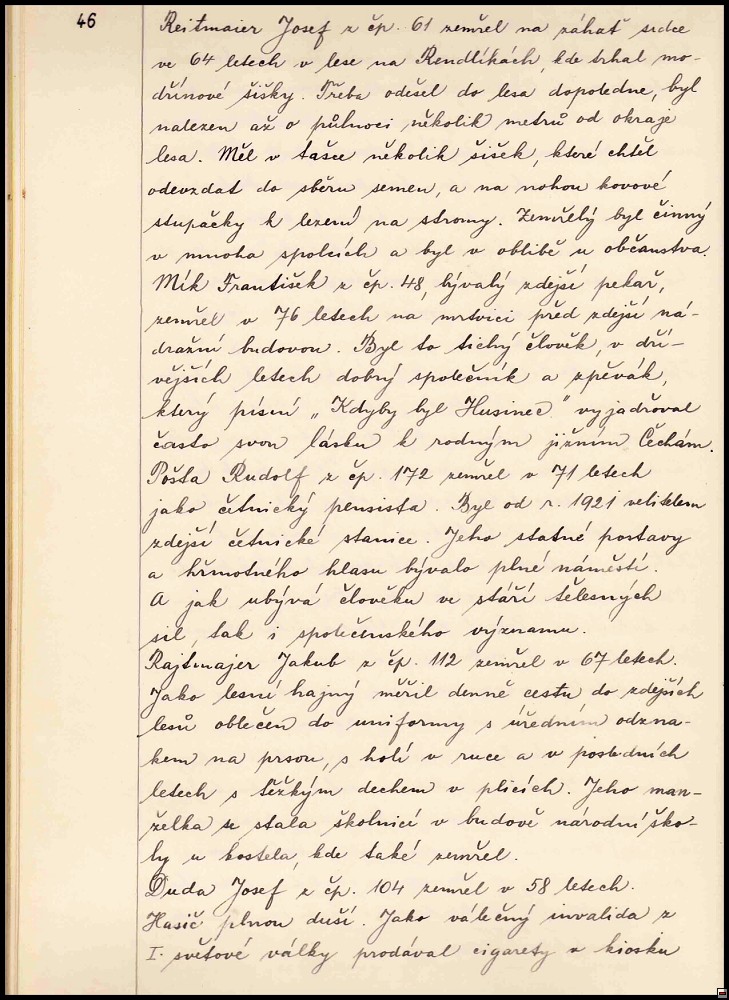 46
Reitmaier Josef z čp. 61 zemřel na záhať srdce
ve 64 letech v lese na Rendlíkách, kde trhal mo-
dřínové šišky. Třeba odešel do lesa dopoledne, byl
nalezen až o půlnoci několik metrů od okraje
lesa. Měl v tašce několik šišek, které chtěl
odevzdat do sběru semen, a na nohou kovové
stupačky k lezení na stromy. Zemřelý byl činný
v mnoha spolcích a byl v oblibě u občanstva.
Mík František z čp. 48, bývalý zdejší pekař,
zemřel v 76 letech na mrtvici před zdejší ná-
dražní budovou. Byl to tichý člověk, v dří-
vějších letech dobrý společník a zpěvák,
který písní „Kdyby byl Husinec" vyjadřoval
často svou lásku k rodným jižním Čechám.
Pošta Rudolf z čp. 172 zemřel v 71 letech
jako četnický pensista. Byl od r. 1921 velitelem
zdejší četnické stanice. Jeho statné postavy
a hřmotného hlasu bývalo plné náměstí.
A jak ubývá člověku ve stáří tělesných
sil, tak i společenského významu.
Rajtmajer Jakub z čp. 112 zemřel v 67 letech.
Jako lesní hajný měřil denně cestu do zdejších
lesů oblečen do uniformy s úředním odzna-
kem na prsou, s holí v ruce a v posledních
letech s těžkým dechem v plicích. Jeho man-
želka se stala školnicí v budově národní ško-
ly u kostela, kde také zemřel.
Duda Josef z čp. 104 zemřel v 58 letech.
Hasič plnou duší. Jako válečný invalida z
I. světové války prodával cigarety v kiosku